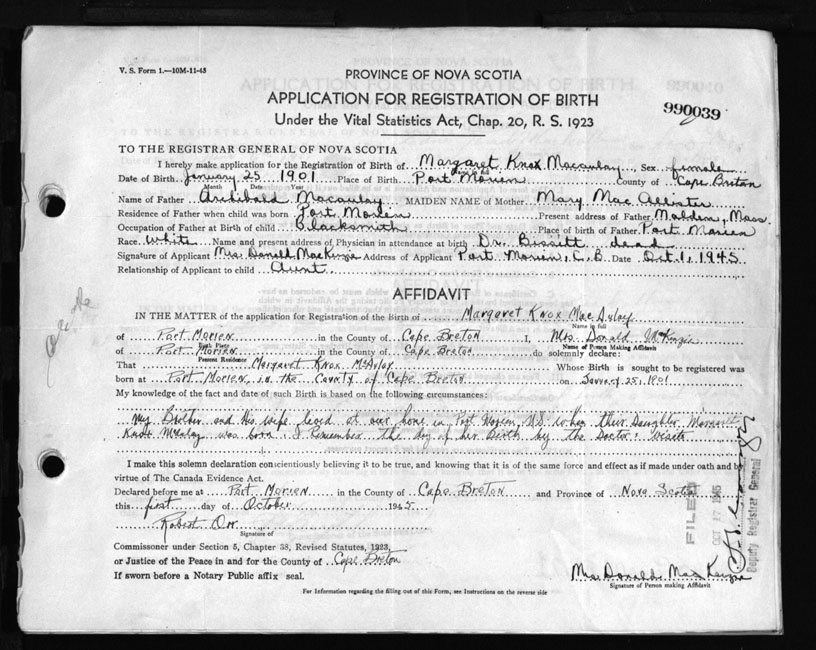 V. S. Form 1.—10M-11-45
PROVINCE OF NOVA SCOTIA
APPLICATION FOR REGISTRATION OF BIRTH
990039
Under the Vital Statistics Act, Chap. 20, R. S. 1923
TO THE REGISTRAR GENERAL OF NOVA SCOTIA
I hereby make application for the Registration of Birth of Margaret Knox Macaulay Sex female
Name in full
Date of Birth January 25 1901 Place of Birth Port Morien County of Cape Breton
Month Date Year
Name of Father Archibald Macaulay MAIDEN NAME of Mother Mary Mac Allister
Residence of Father when child was born Port Morien Present address of Father Malden, Mass
Occupation of Father at Birth of child Blacksmith Place of birth of Father Port Morien
Race White Name and present address of Physician in attendance at birth Dr. Bissett dead
Signature of Applicant Mrs Donald MacKenzie Address of Applicant Port Morien, C. B. Date Oct. 1, 1945
Relationship of Applicant to child Aunt
AFFIDAVIT
IN THE MATTER of the application for Registration of the Birth of Margaret Knox MacAulay
Name in full
of Port Morien in the County of Cape Breton I, Mrs Donald McKenzie
Birth Place Name of Person Making Affidavit
of Port Morien in the County of Cape Breton do solemnly declare:
Present Residence
That Margaret Knox McAulay Whose Birth is sought to be registered was
born at Port Morien, in the County of Cape Breton on January 25, 1901
My knowledge of the fact and date of such Birth is based on the following circumstances:
My Brother and His wife lived at our home in Port Morien, N.S. when their Daughter Margaret
Knox McAulay was born. I Remember the day of her Birth by the Doctor's visits
I make this solemn declaration conscientiously believing it to be true, and knowing that it is of the same force and effect as if made under oath and by
virtue of The Canada Evidence Act.
Declared before me at Port Morien in the County of Cape Breton and Province of Nova Scotia
this first day of October 1945
Robert Orr
Signature of
Commissioner under Section 5, Chapter 38, Revised Statutes, 1923,
or Justice of the Peace in and for the County of Cape Breton
If sworn before a Notary Public affix seal.
Mrs Donald MacKenzie
Signature of Person making Affidavit
For Information regarding the filling out of this Form, see Instructions on the reverse side
FILED
OCT 17 1945
Deputy Registrar General